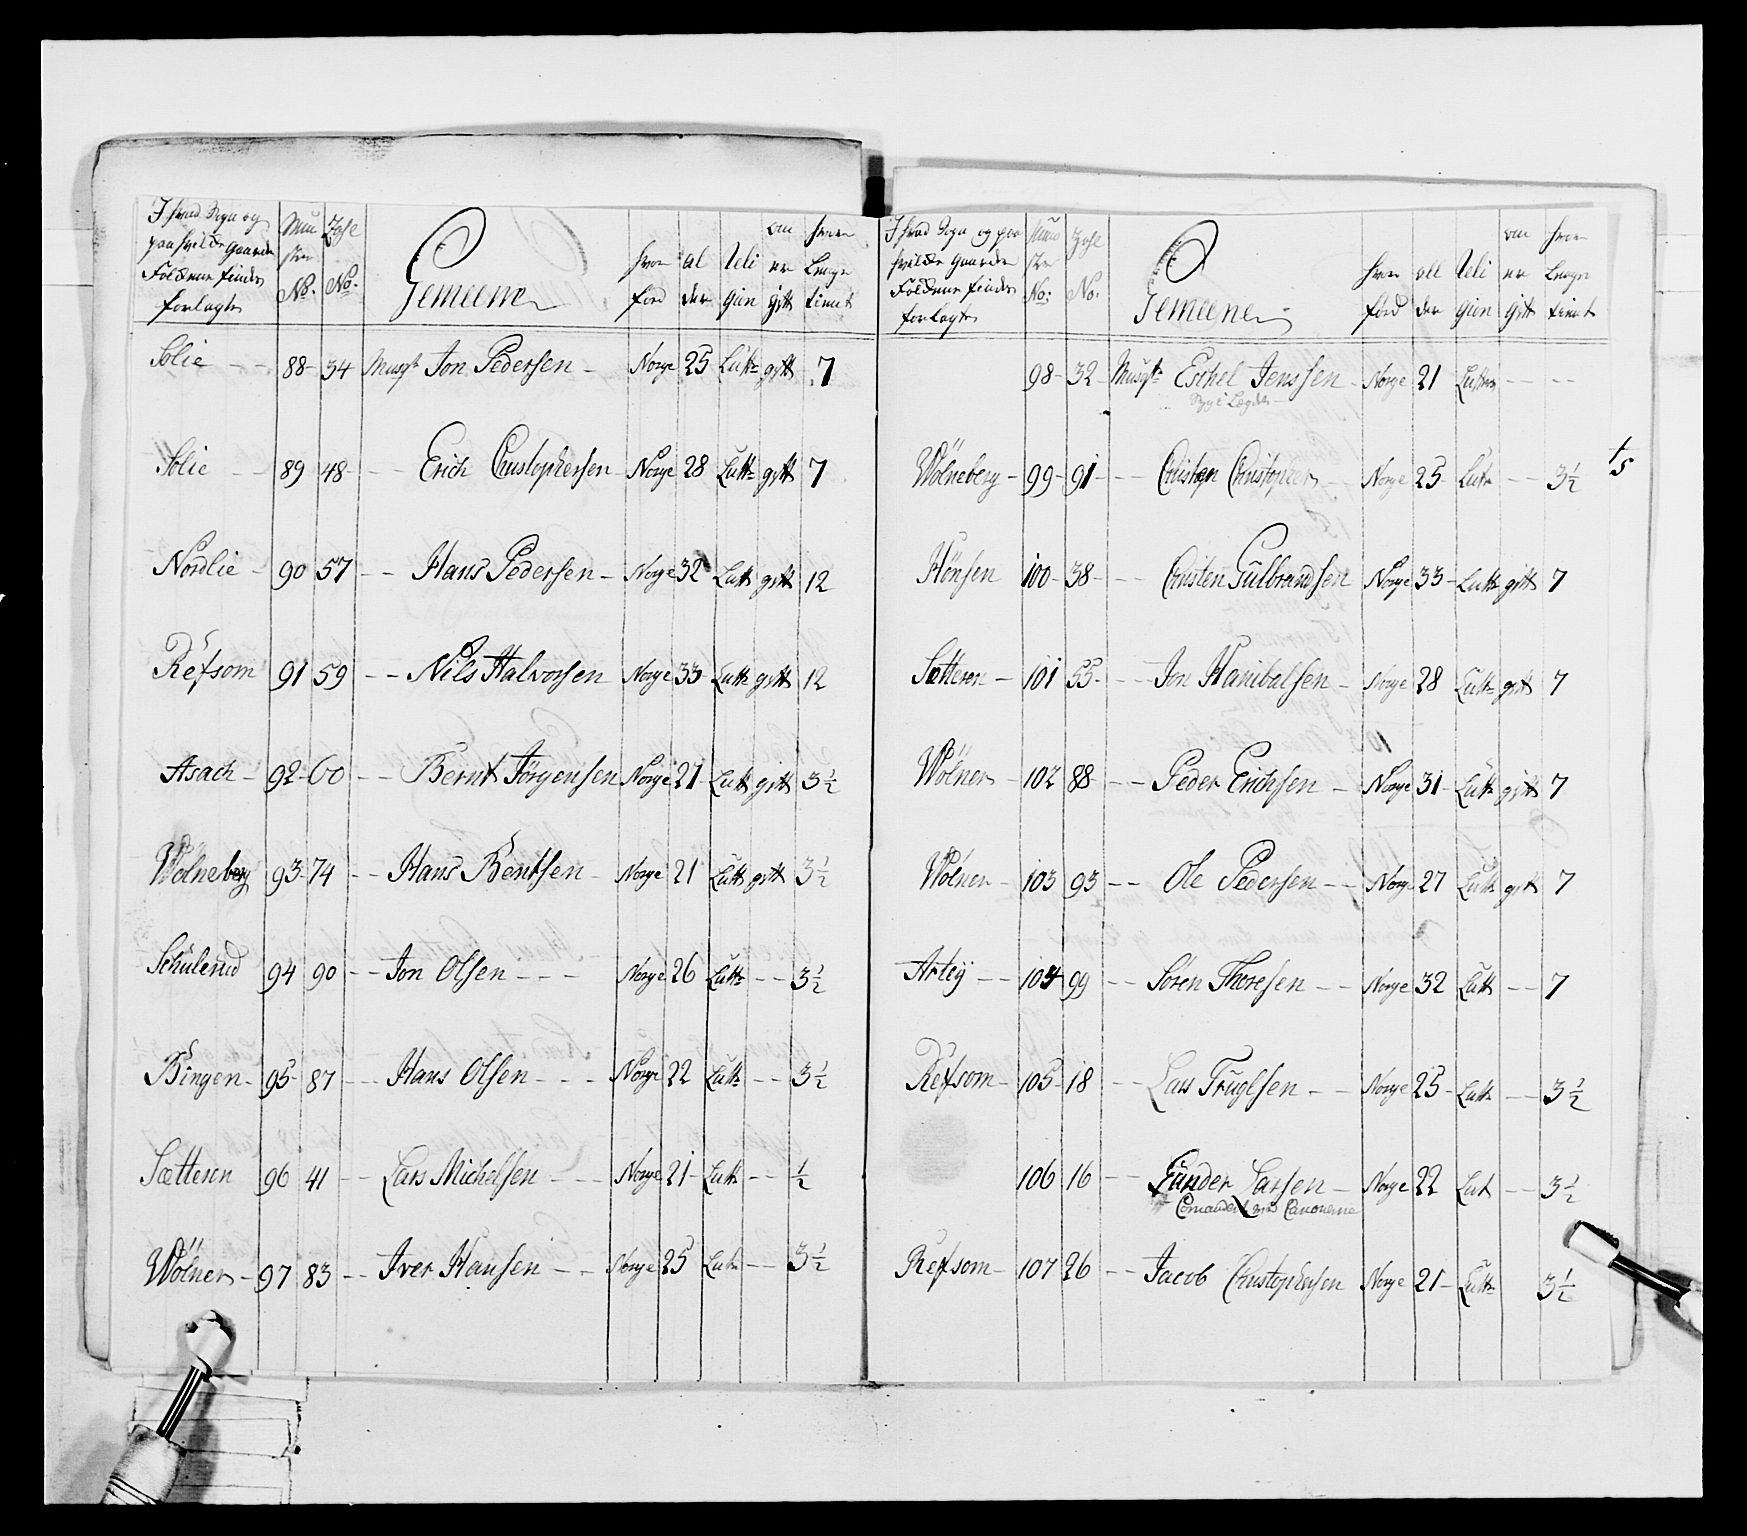 I hvad Sogn og
paa hvilde Gaarde
Foldene findes
forlagte
Mun
ster
No.
Zahl
No.
Gemeene
hvor
fød
al
der
Reli
gion
om
er
gift
hvor
Lenge
tient
Solie - - 88- 34 Musqt Jon Pedersen - Norge 25 Lutt gift 7
Solie - - 89 48- - - Erich Christophersen Norge 28 Lutt gift 7
Nordlie - 90 57 - - Hans Pedersen - Norge 32 Lutt gift 12
Refsom 91 59 - - Nils Halvorsen Norge 33 Lutt gift 12
Asach - 92- 60 - - Bernt Jörgensen Norge 21 Lutt gift 3½
Wölneberg 93- 74 - - Hans Berntsen - Norge 21 Lutt gift 3½
Schulerud 94 90 - - Jon Olsen - - - Norge 26 Lutt - - 3½
Bingen - 95- 87 - - Hans Olsen - - - Norge 22 Lutt - - 3½
Sætteren 96 41 - - Lars Michelsen - - - Norge 21- Lutt - - ½
Wölner - 97 83 - - Iver Hansen - - Norge 25 Lutt - - 3½
I hvad Sogn og paa
hvilde Gaarde
Foldene findes
forlagte
Mun
ster
No:
Zahl
No.
Gemeene
hvor
fød
all
der
Reli
gion
om
er
Gift
hvor
Lenge
tient
98- 32- Musqt Eschel Jenssen - Norge 21 Lutter - - - -
Syg i Lægden
Wölneberg - 99- 91- - - Christen Christophers - Norge 25- Lutt - - 3½
t5
Hönsen 100- 38- - - Christen Gulbrandsen Norge 33- Lutt gift 7
Sætteren - 101 55- - - Jon Hanibalsen - Norge 28 Lutt gift 7
Wölner - 102 88- - - Peder Erichsen - Norge 31- Lutt gift 7
Wölner - 103 93 - - Ole Pedersen - - Norge 27 Lutt gift 7
Arteÿ - - 104 99 - - Sören Thoresen - - Norge 32 Lutt - - 7
Refsom - 105- 18 - - Lars Truglsen - - Norge 25- Lutt - - 3½
106 16 - - Gunder Larsen - Norge 22 Lut - - 3½
Comandert ved Canonerne
Refsom - 107 26 - - Jacob Christophersen Norge 21- Lutt 3½